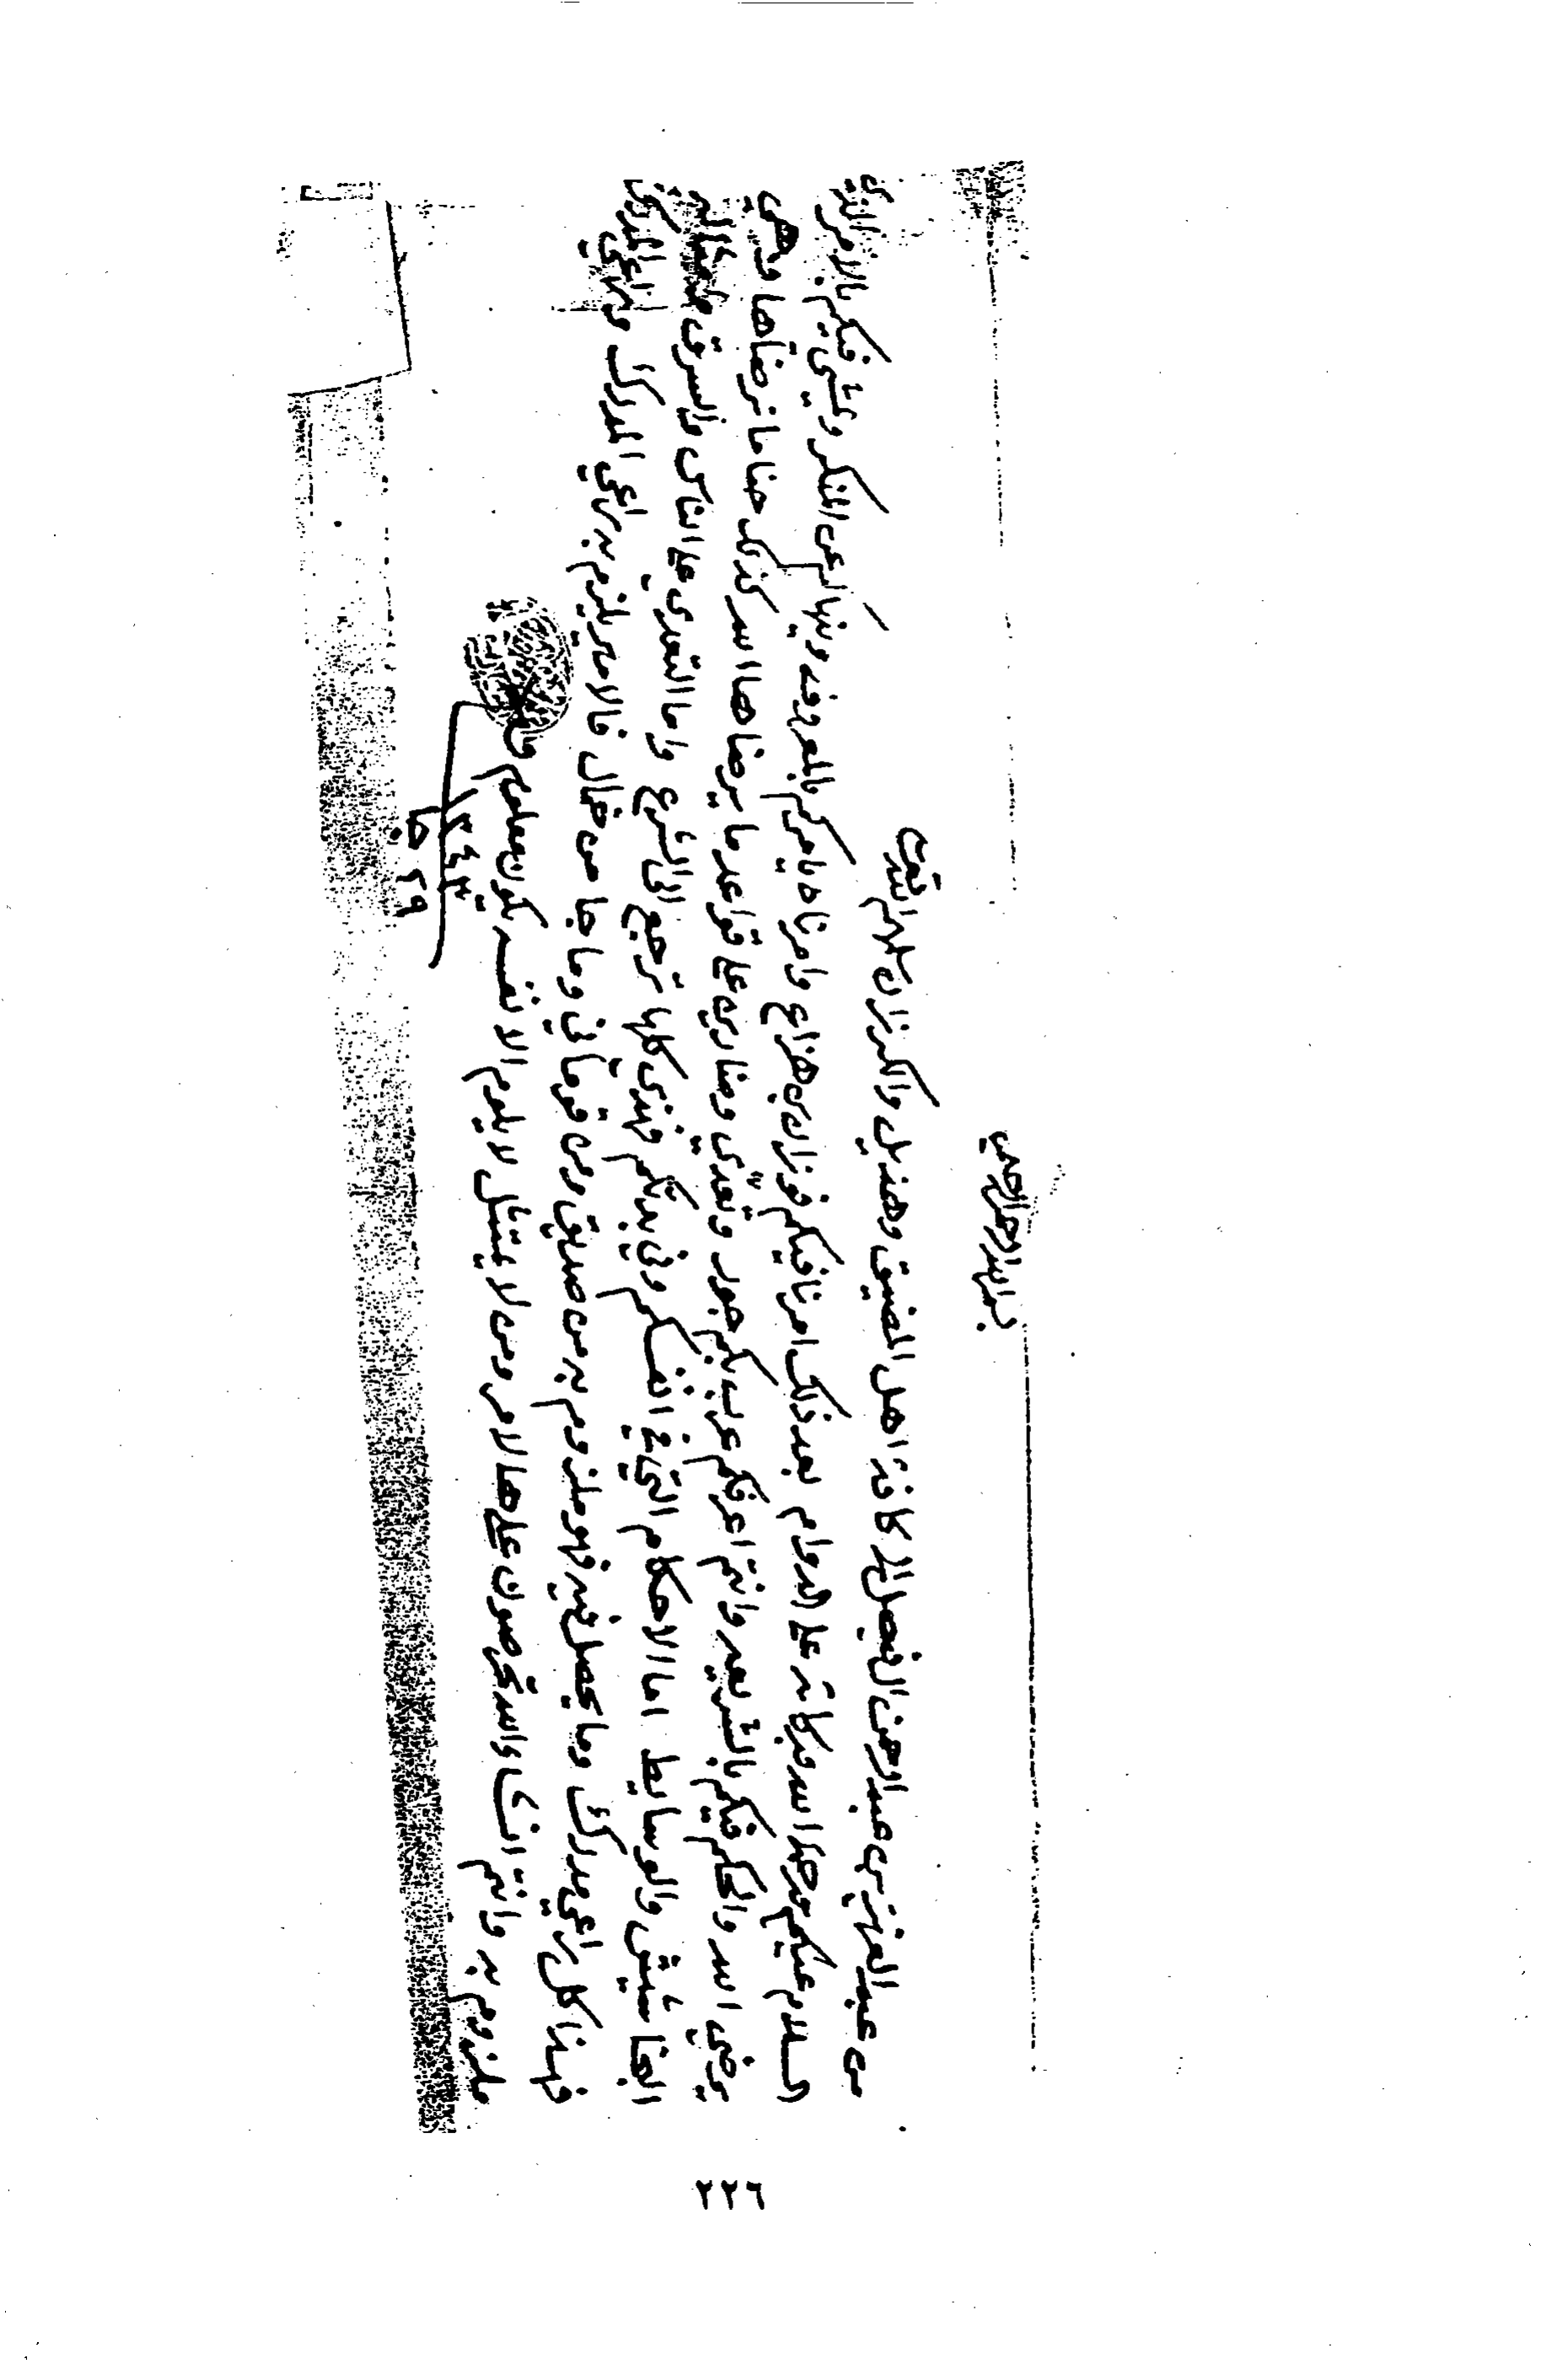 بسم الله الرحمن الرحيم
من عبد العزيز بن عبد الرحمن الفيصل الى كافة اهل المضيق وهذيل والكرزان سلمهم الله تعالى
السلام عليكم ورحمة الله وبركاته على الدوام بعد ذلك امرنا فيكم فوزان بن هزاع وامرناه يامركم بالمعروف وينهاكم عن المنكر ويمشي فيكم بالامر الذي
يرضي الله والحكم فيكم بالشريعه وانتم اعرفكم عرب بكم جور وتعدي وضارين على قواعد ما يرضاها الله كذلك حنا ما نرضاها وهي
الجنا والوسايط اما الاحكام التي في انفسكم وفي بدنكم فهذي كلها ترجع الى الشرع واما التعدي على الناس والسرق
فهذا كل راعي مدرك وما يحصل فيه فهو ملزوم به من صديق ومن قوماني وما جا من خمال فالامير يلزم به راعي المدرك وراعي المدرك
ملزوم به وانتم انشا والله تحرصون على هالامر ومن لا يمتثل لا يلوم الا نفسه يكون معلوم
٢٩ جا
١٣٤٣
٢٢٦